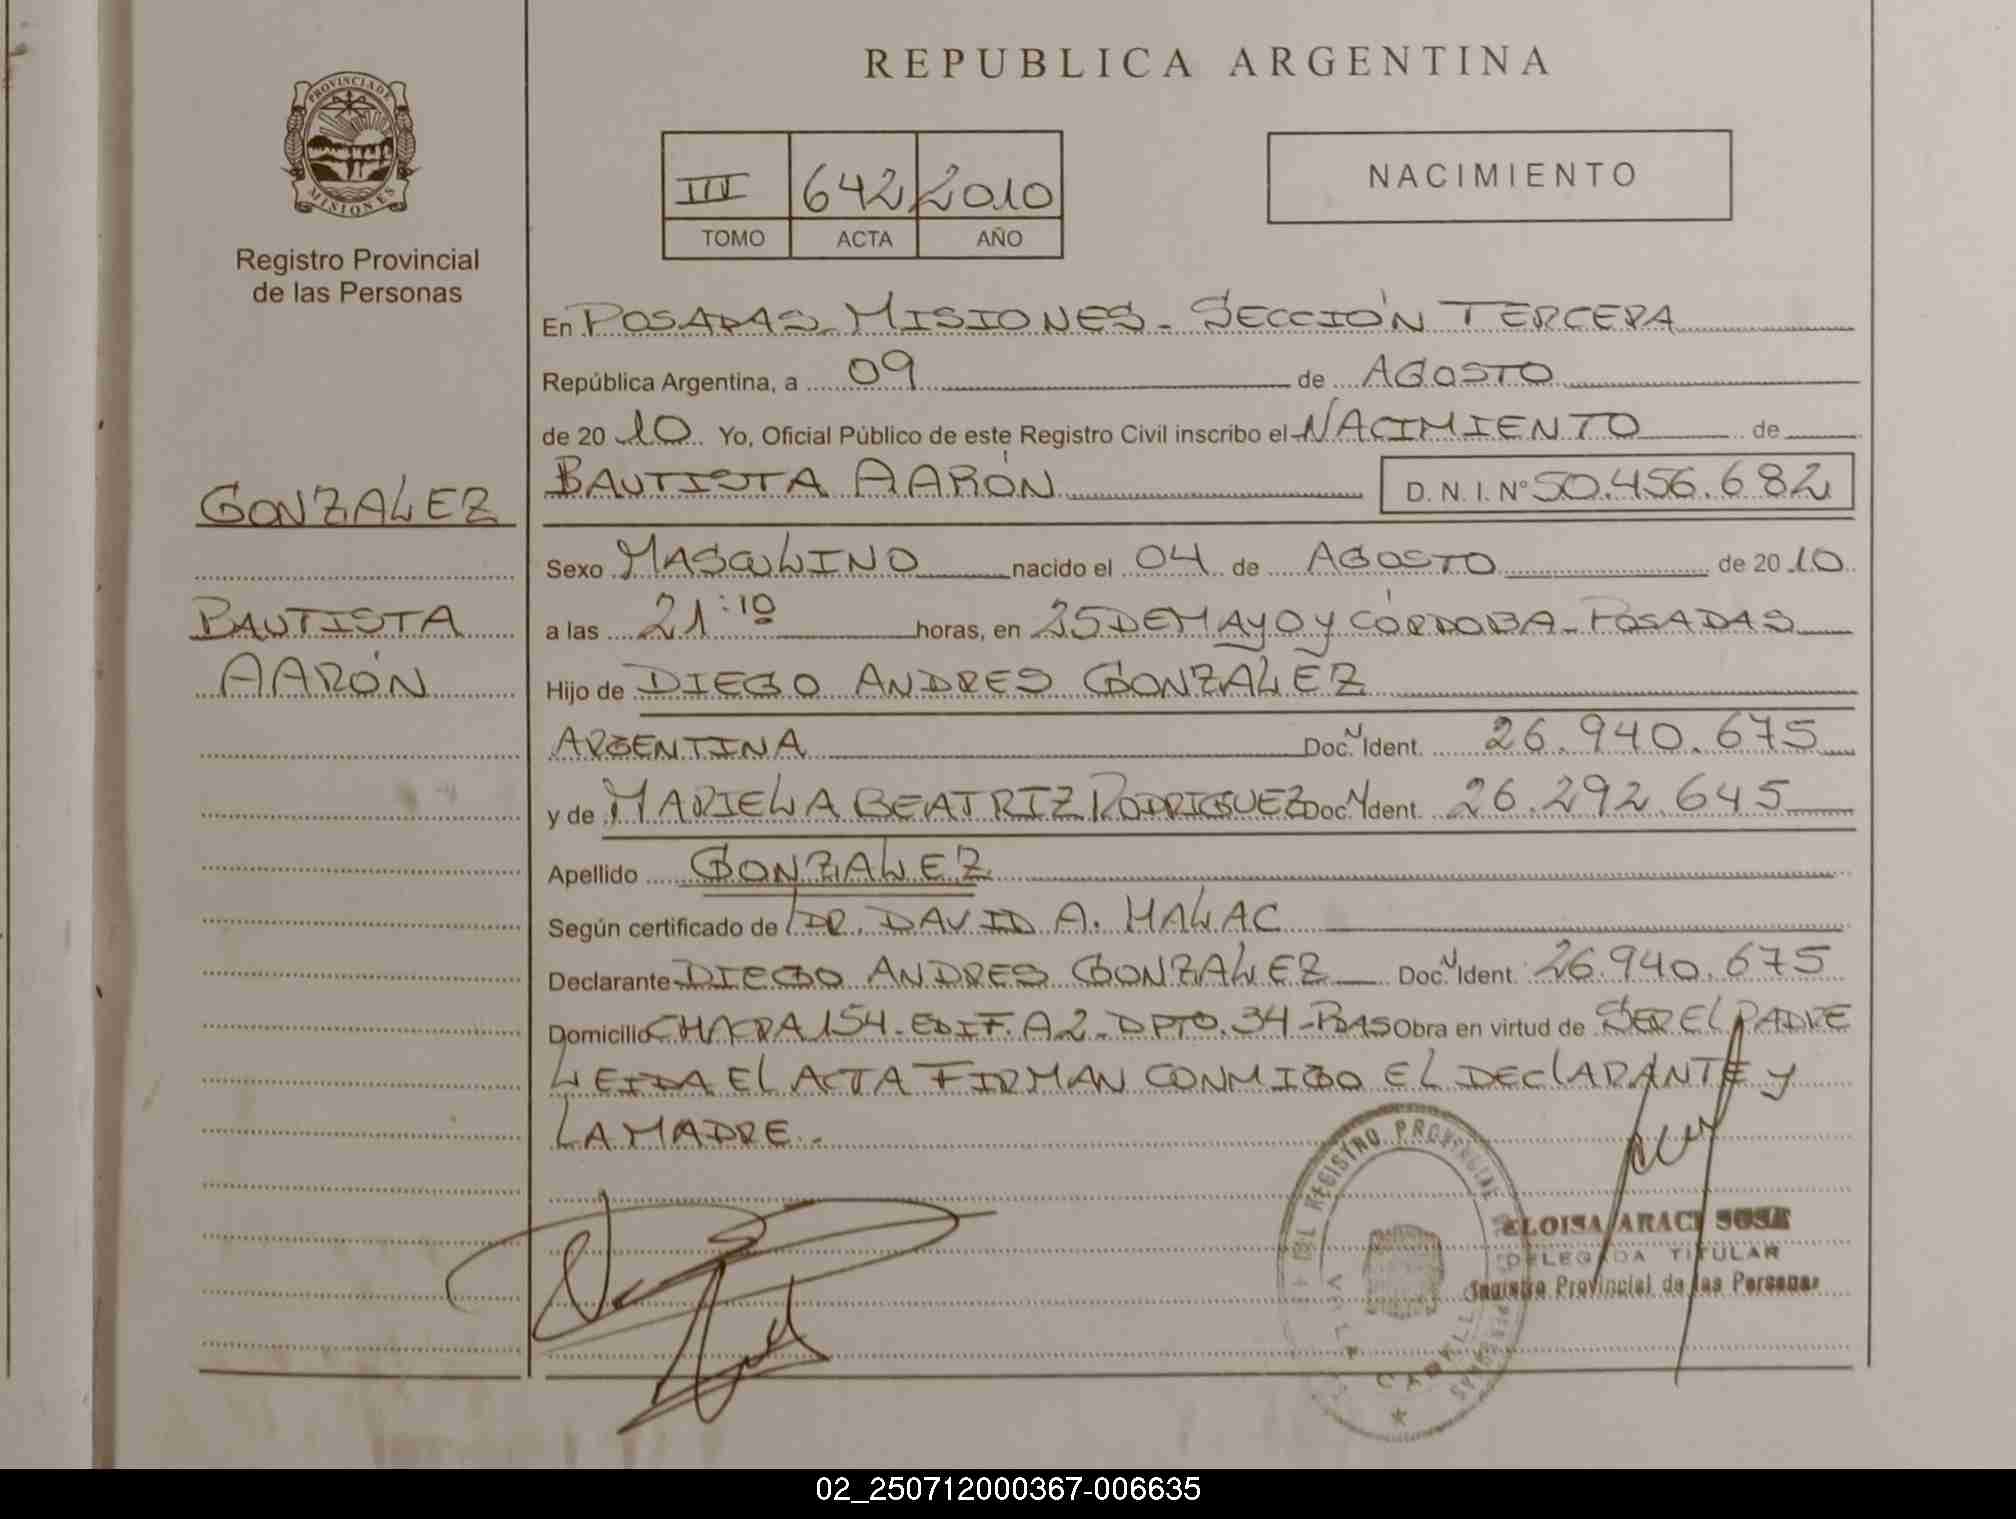 REPUBLICA ARGENTINA
PROVINCIA DE
MISIONES
Registro Provincial
de las Personas
III 642 2010
TOMO ACTA AÑO
NACIMIENTO
En POSADAS - MISIONES - SECCIÓN TERCERA
República Argentina, a 09 de AGOSTO
de 20 10 Yo, Oficial Público de este Registro Civil inscribo el NACIMIENTO de
BAUTISTA AARÓN D. N. I. Nº 50.456.682
GONZALEZ
BAUTISTA
AARÓN
Sexo MASCULINO nacido el 04 de AGOSTO de 20 10
a las 21:10 horas, en 25 DE MAYO y CÓRDOBA - POSADAS
Hijo de DIEGO ANDRES GONZALEZ
ARGENTINA Doc. N Ident. 26.940.675
y de MARIELA BEATRIZ RODRIGUEZ Doc. N Ident. 26.292.645
Apellido GONZALEZ
Según certificado de DR. DAVID A. MALAC
Declarante DIEGO ANDRES GONZALEZ Doc. N Ident. 26.940.675
Domicilio CHACRA 154 - EDIF. A2 - DPTO. 34 - PDAS Obra en virtud de SER EL PADRE
LEIDA EL ACTA FIRMAN CONMIGO EL DECLARANTE y
LA MADRE.-
DEL REGISTRO PROVINCIAL
ELOISA ARACI SOSA
DELEGADA TITULAR
Registro Provincial de las Personas
02_250712000367-006635